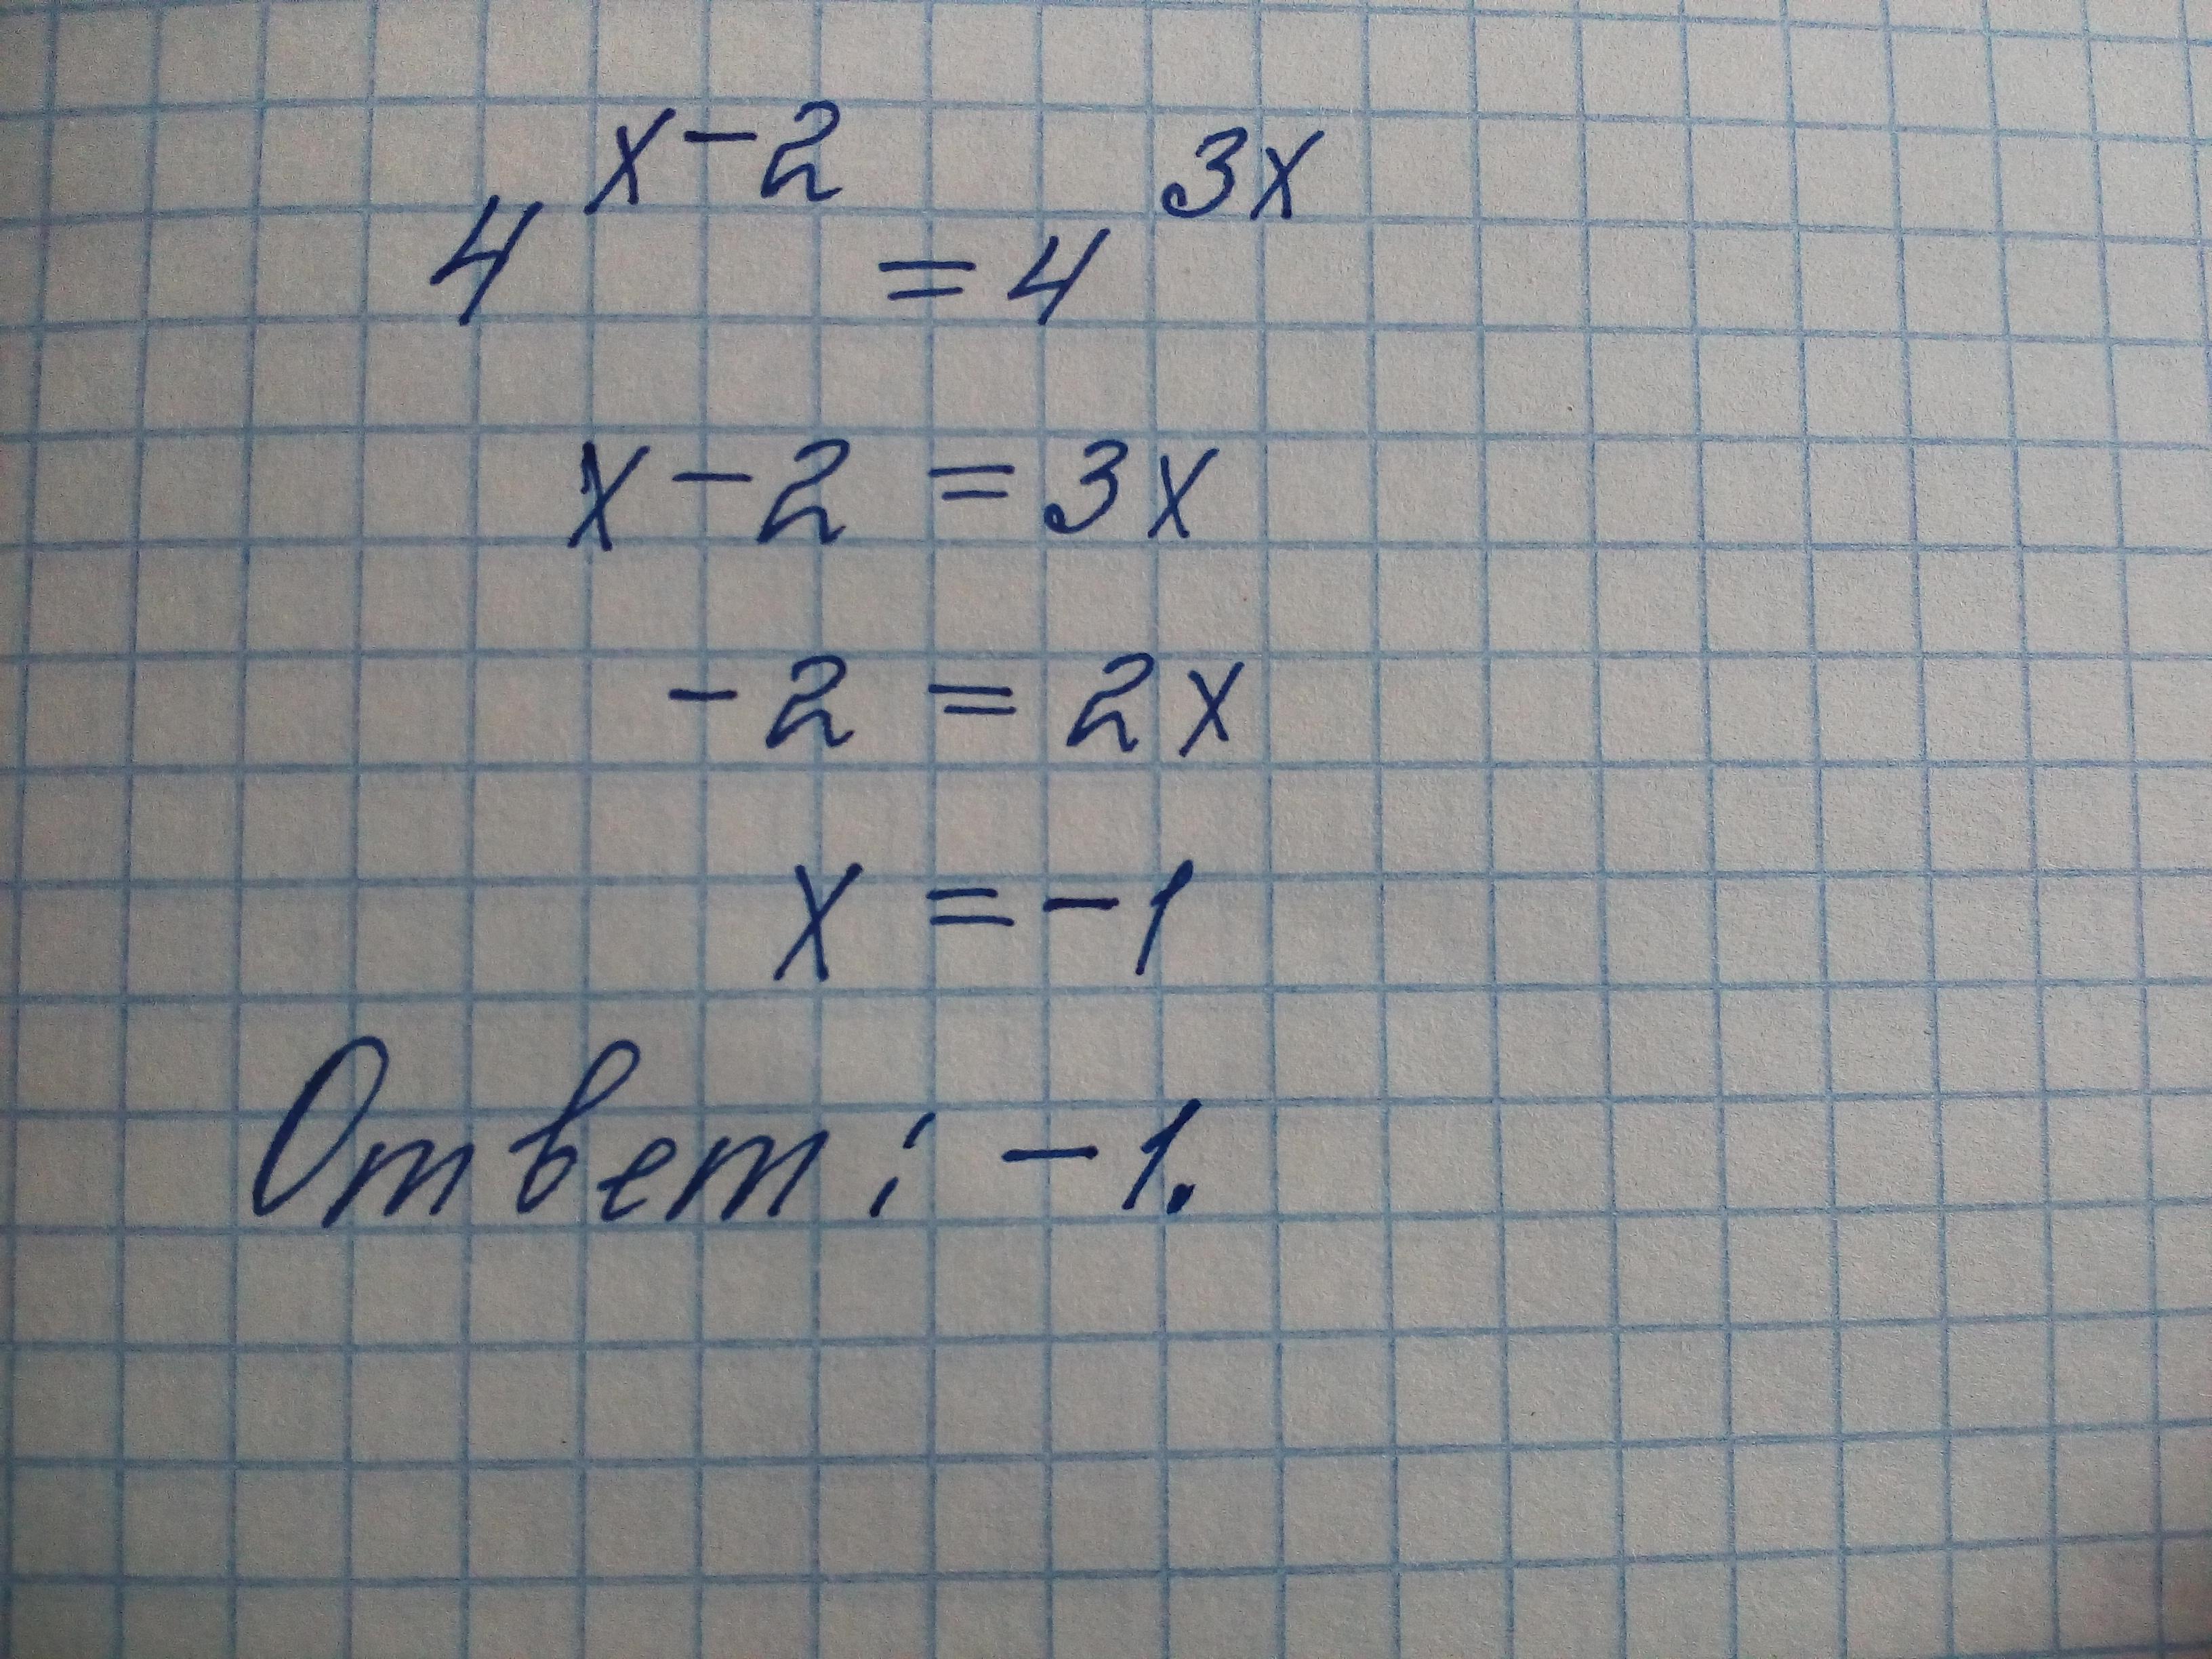 4^{x-2} = 4^{3x}
x - 2 = 3x
-2 = 2x
x = -1
Ответ: -1.